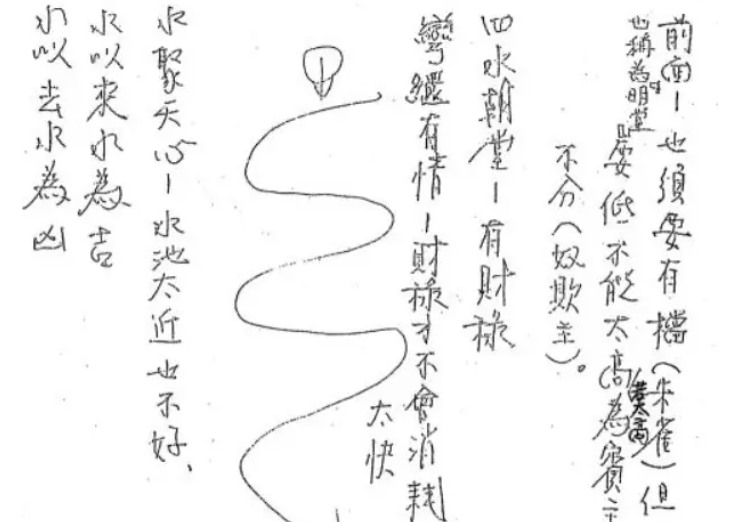 前(面)—也須要有檔(朱雀)但
也稱為明堂
要低不能太高為賓主
太高
不分(奴欺主)。
四水朝堂—有財祿
彎有情—財祿才不會消耗
太快
水聚天心—水池太近也不好、
水以來水為吉
水以去水為凶